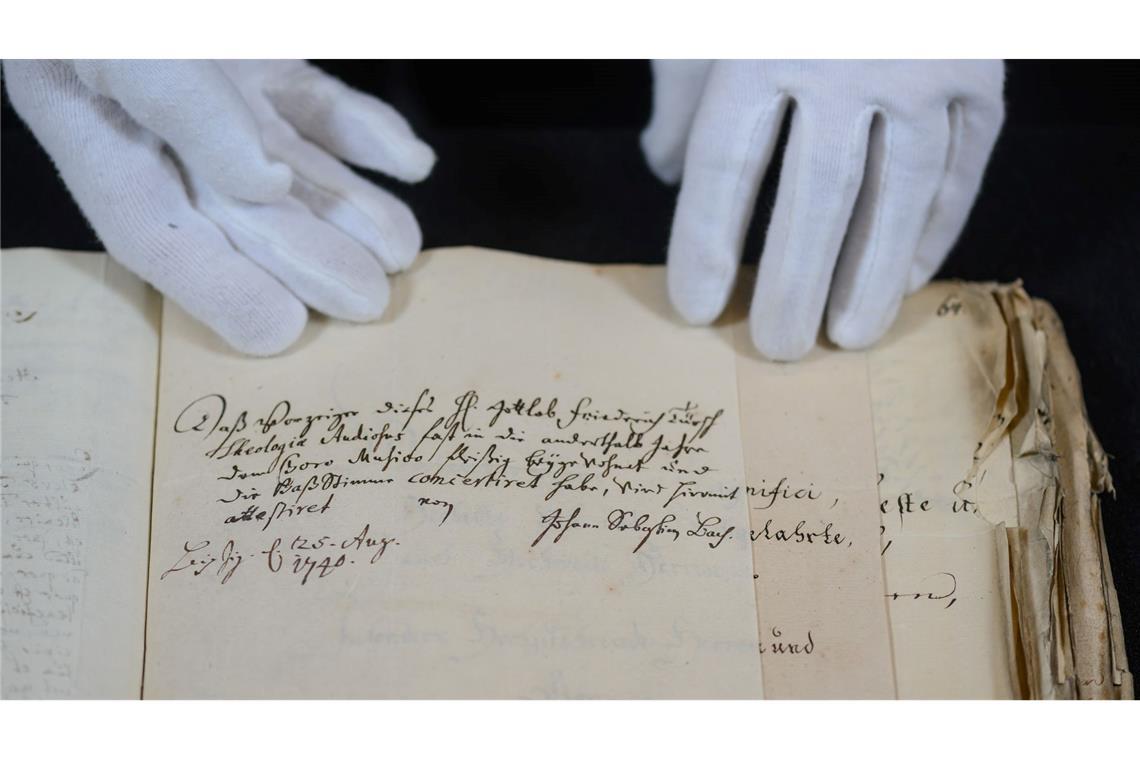 Daß Vorzeiger dieses H. Gottlob Friedrich Türck
Theologiæ Studiosus fast in die anderthalb Jahre
dem Choro Musico fleißig beygewohnet und
die Baß Stimme concertiret habe, wird hiermit
attestiret von Johann Sebastian Bach.
Leipzig. d 25. Aug.
1740.
nifici,
elahrte,
und
este
64